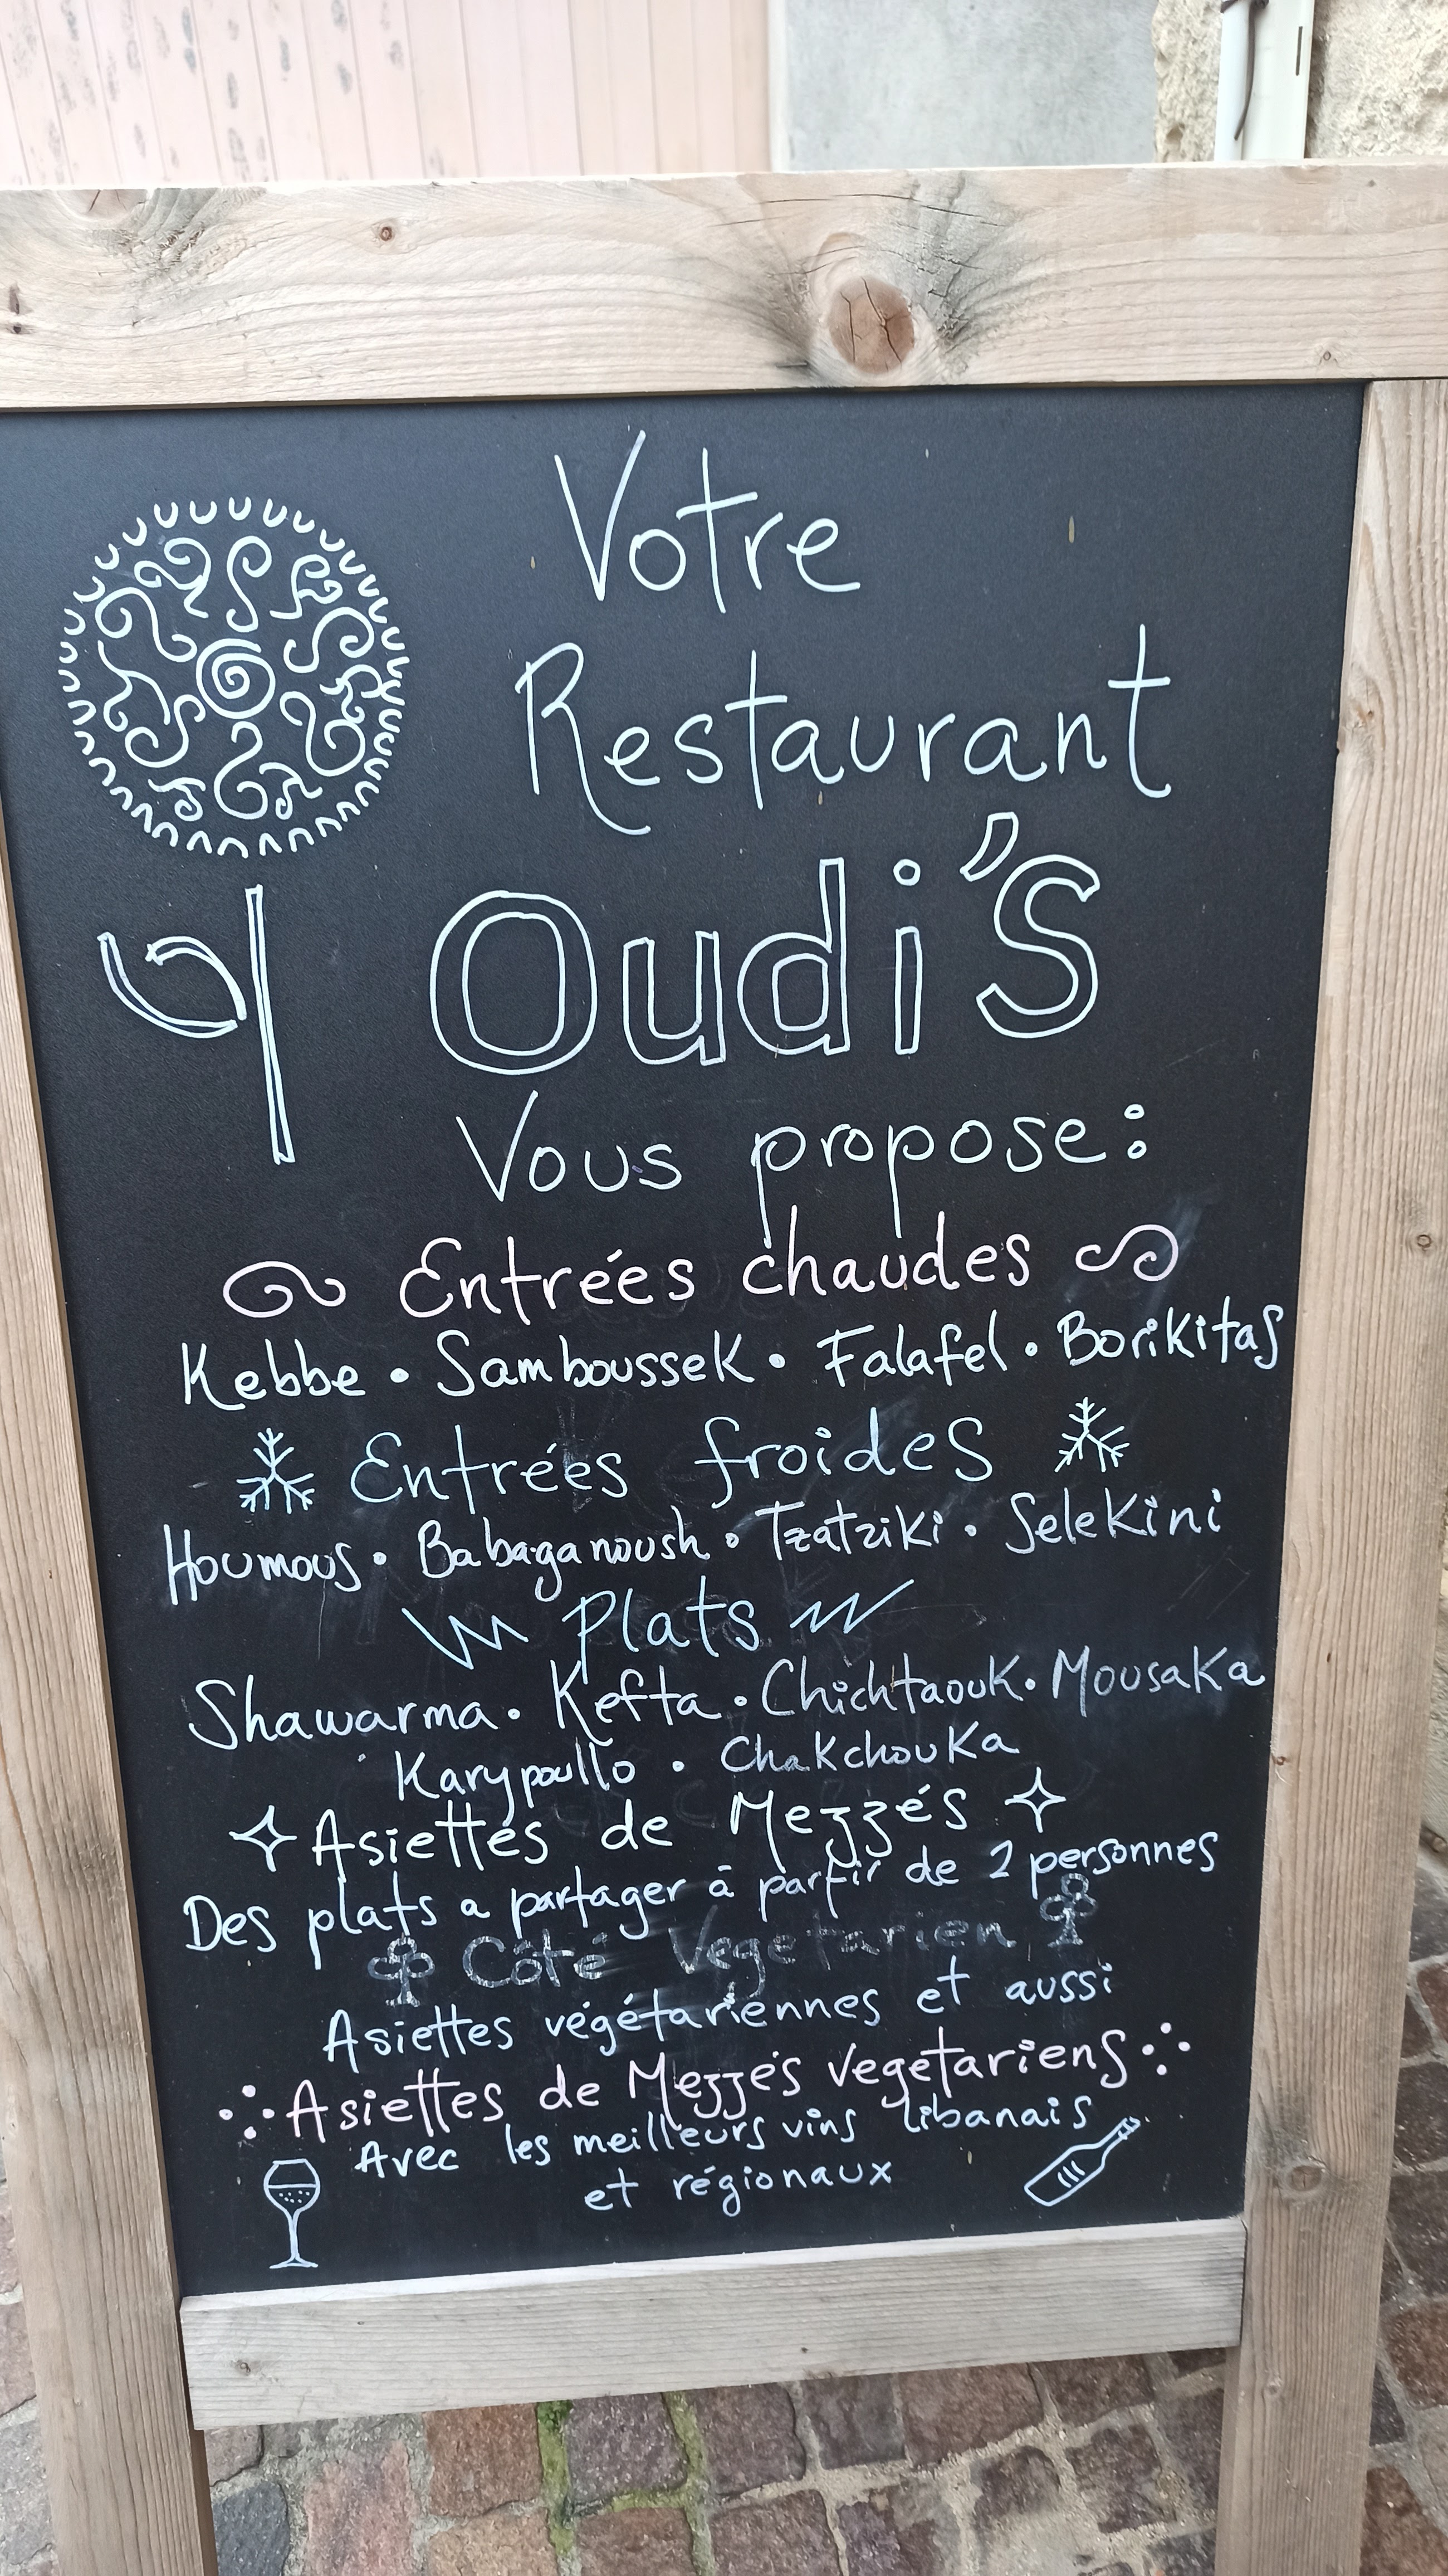 Votre
Restaurant
Oudi's
Vous propose:
Entrées chaudes
Kebbe • Samboussek • Falafel • Borikitas
Entrées froides
Houmous • Babaganoush • Tzatziki • Selekini
Plats
Shawarma • Kefta • Chichtaouk • Mousaka
Karypoullo • Chakchouka
Asiettes de Mezzés
Des plats a partager à partir de 2 personnes
Côté Vegetarien
Asiettes végétariennes et aussi
Asiettes de Mezzés vegetariens
Avec les meilleurs vins libanais
et régionaux